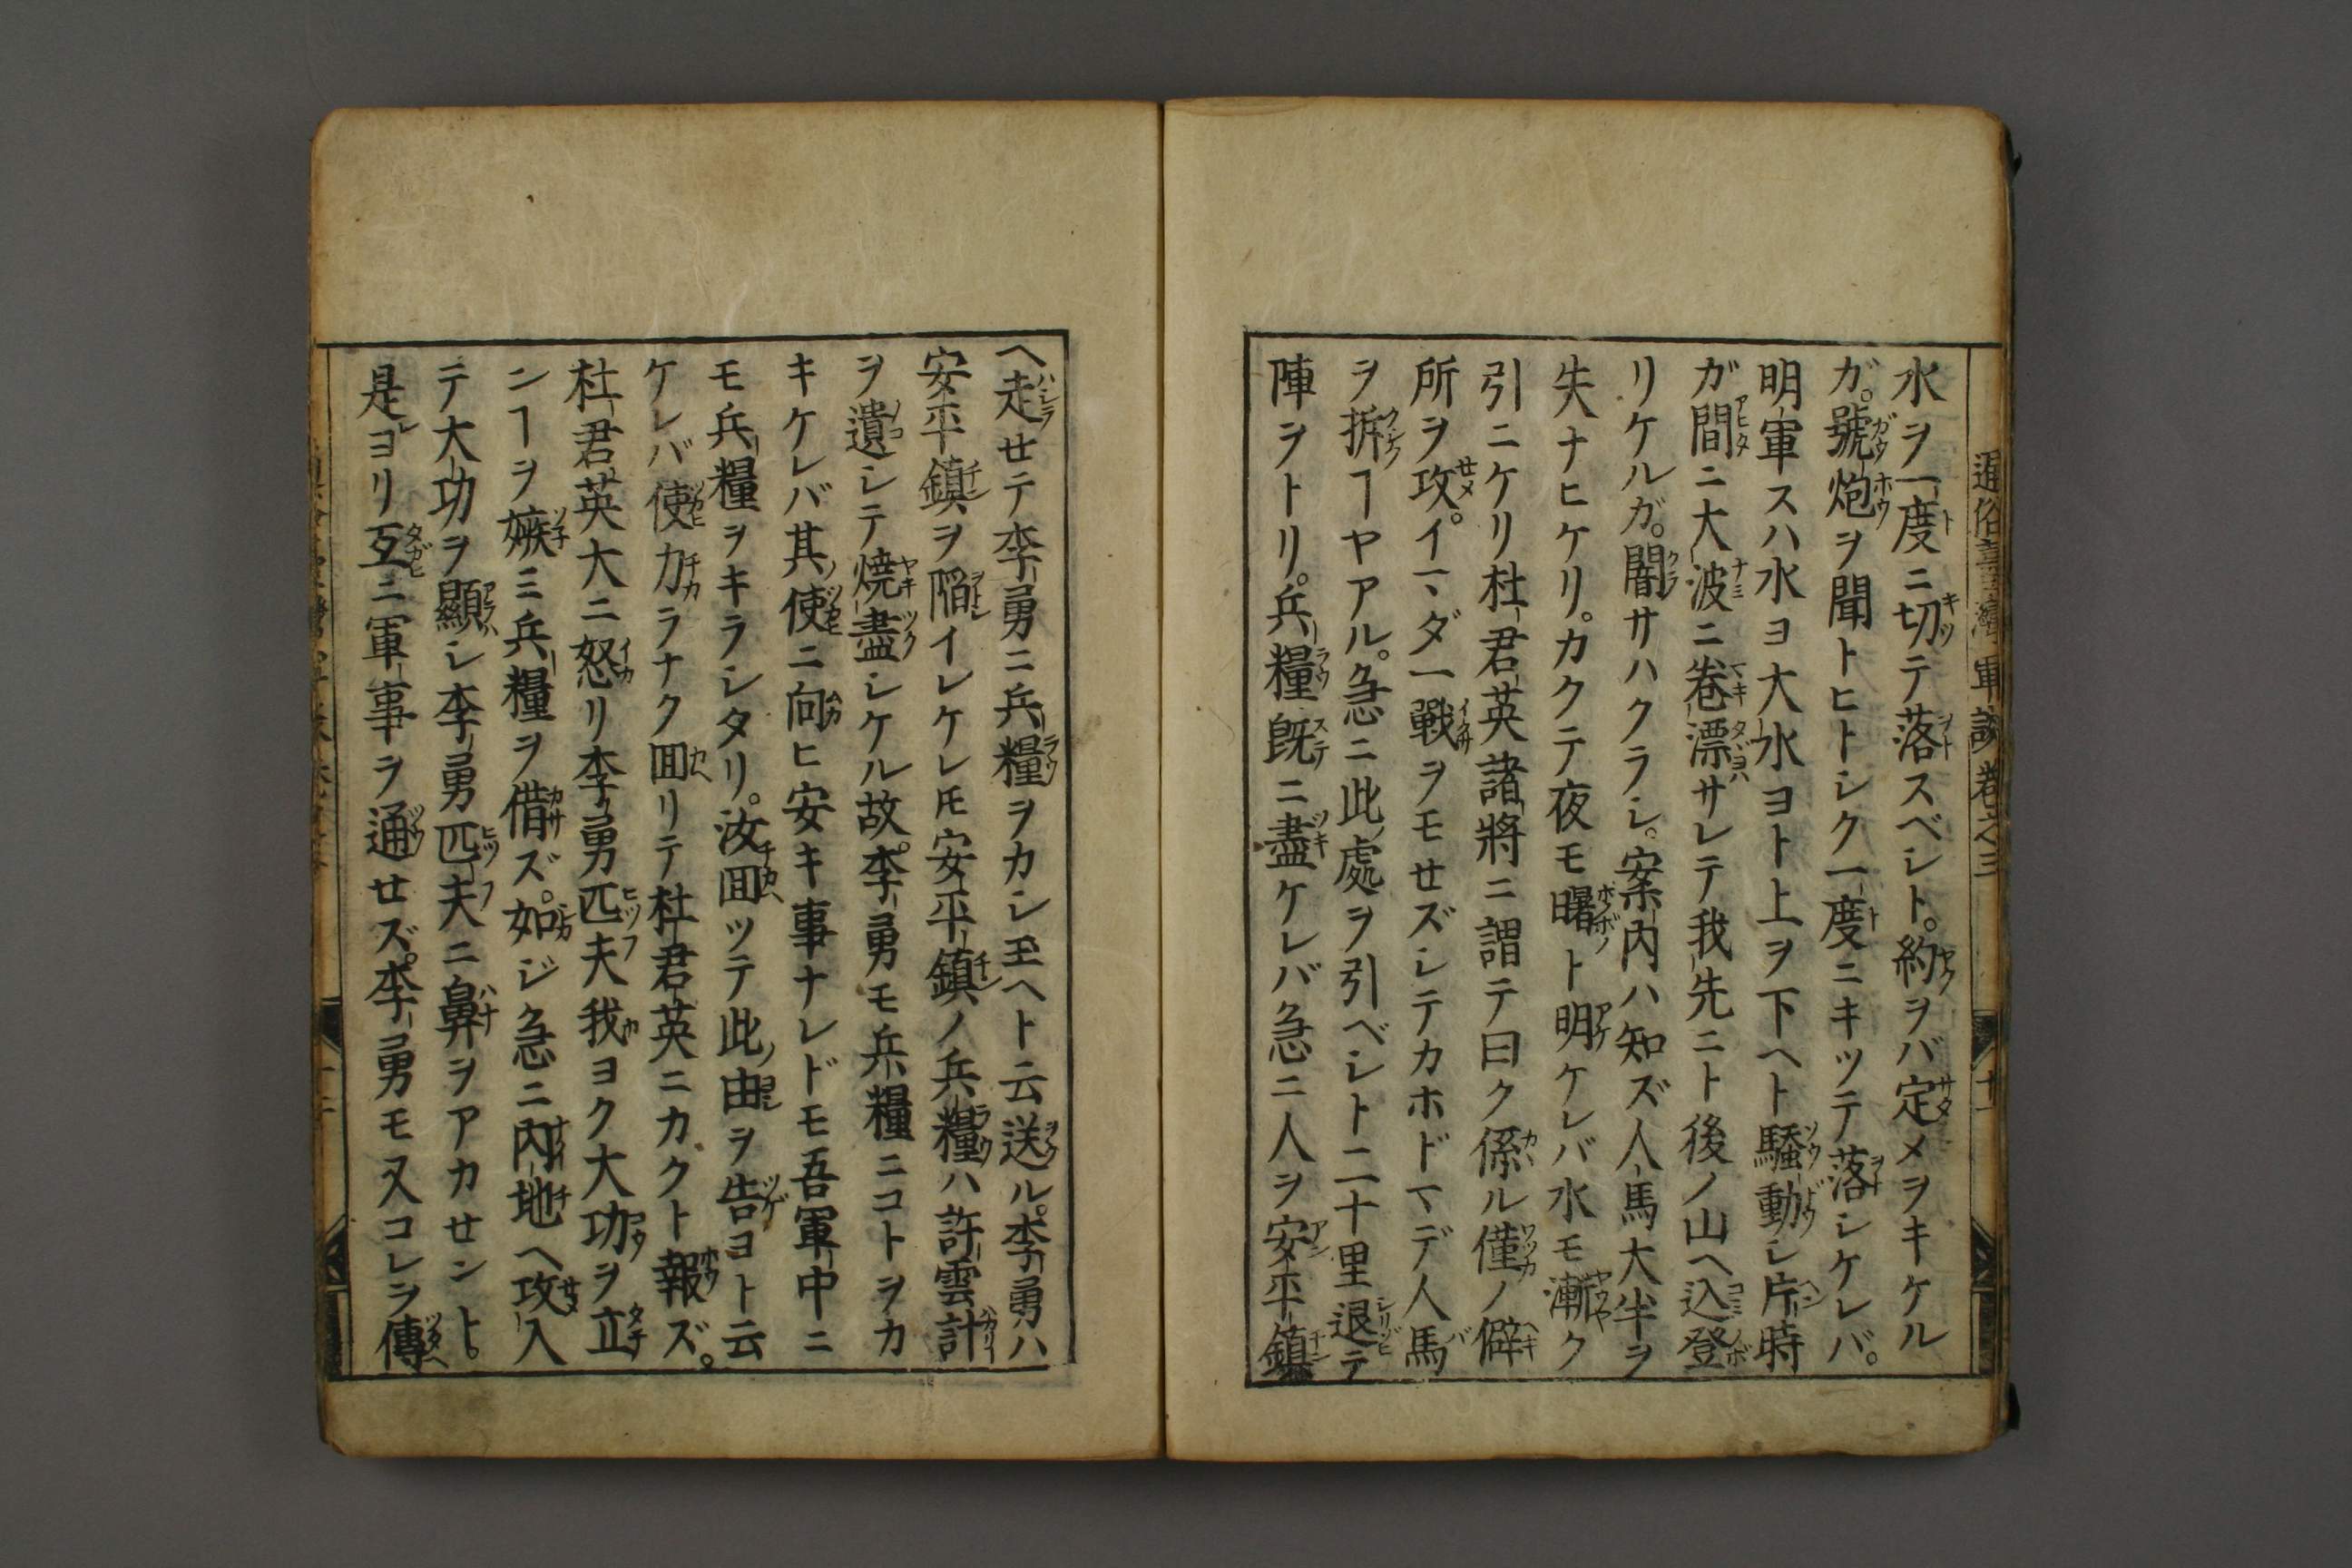 通俗臺灣軍談卷之三
十一
水ヲ一度ニ切テ落スベシト。約ヲバ定メヲキケル
ガ。號炮ヲ聞トヒトシク一度ニキツテ落シケレバ。
明軍スハ水ヨ大水ヨト上ヲ下ヘト騷動シ片時
ガ間ニ大波ニ卷漂サレテ我先ニト後ノ山ヘ込登
リケルガ。闇サハクラシ。案内ハ知ズ人馬大半ヲ
失ナヒケリ。カクテ夜モ曙ト明ケレバ水モ漸ク
引ニケリ杜君英諸將ニ謂テ曰ク係ル僅ノ僻
所ヲ攻。イマダ一戰ヲモせズシテカホドマデ人馬
ヲ拆ヿヤアル。急ニ此處ヲ引ベシト二十里退テ
陣ヲトリ。兵糧既ニ盡ケレバ急ニ人ヲ安平鎮
ヘ走せテ李勇ニ兵糧ヲカシ玉ヘト云送ル。李勇ハ
安平鎮ヲ陷イレケレ𪜈安平鎮ノ兵糧ハ許雲計
ヲ遺シテ燒盡シケル故。李勇モ兵糧ニコトヲカ
キケレバ其使ニ向ヒ安キ事ナレドモ吾軍中ニ
モ兵糧ヲキラシタリ。汝囬ツテ此由ヲ告ヨト云
ケレバ使力ラナク囬リテ杜君英ニカクト報ズ。
杜君英大ニ怒リ李勇匹夫我ヨク大功ヲ立
ンヿヲ嫉ミ兵糧ヲ借ズ。如ジ急ニ内地ヘ攻入
テ大功ヲ顯シ李勇匹夫ニ鼻ヲアカせント。
是ヨリ互ニ軍事ヲ通せズ。李勇モ又コレヲ傳